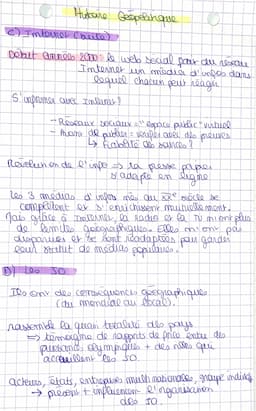 Histoire Géopolitique
C) Internet (suite)
Début années 2000 le web social fait du réseau
Internet un média d'infos dans
lequel chacun peut réagir
S'informer avec Internet ?
- Réseaux sociaux = "espace public" virtuel
↳ fiabilité des sources ?
Révolution de l'info ⇒ la presse papier
s'adapte en ligne
Les 3 médias d'infos nés au XXe siècle se
complètent et s'enrichissent mutuellement.
Mais grâce à Internet, la radio et la TV n'ont plus
de limites géographiques. Elles n'ont pas
disparues et se sont réadaptées pour garder
leur statut de médias populaires.
D) Les JO
Ils ont des conséquences géographiques
(du mondial au local).
rassemble la quasi totalité des pays
⇒ témoigne de rapports de force entre des
puissances olympiques + des villes qui
accueillent les JO
acteurs, états, entreprises multinationales,
→ pression + influencent l'organisation
des JO.